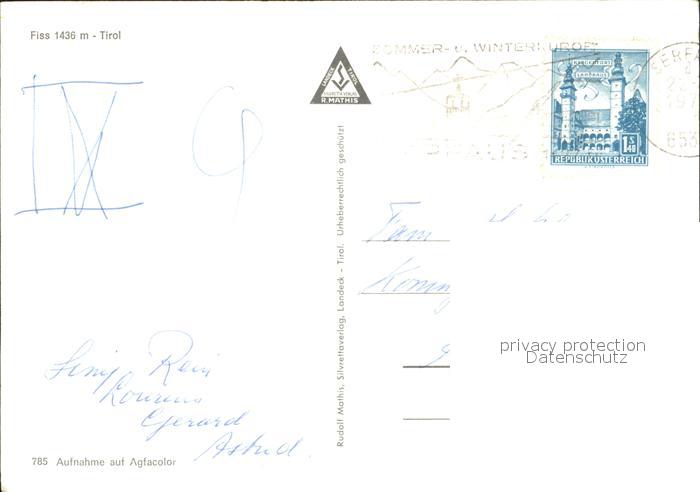 Fiss 1436 m - Tirol
SOMMER- u. WINTERKURORT
SERFAUS
R. MATHIS
KLAGENFURT
LANDHAUS
1 S 40
REPUBLIK ÖSTERREICH
IX 9
Fam
privacy protection
Datenschutz
Rein
Lourens
Gerard
Astrid.
Rudolf Mathis, Silvrettaverlag, Landeck - Tirol. Urheberrechtlich geschützt
785 Aufnahme auf Agfacolor